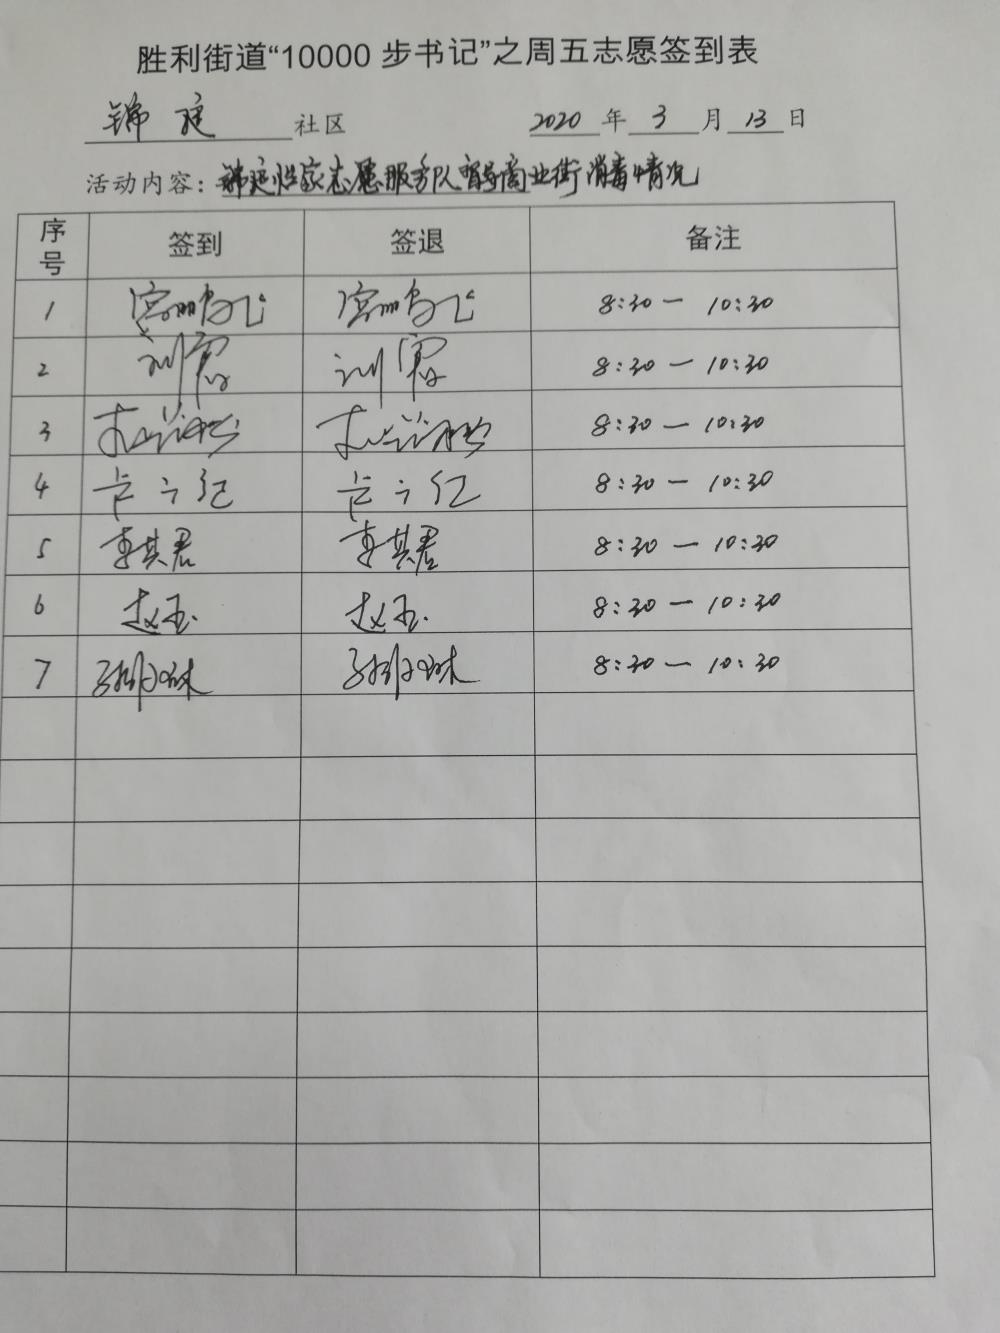 胜利街道“10000 步书记”之周五志愿签到表
锦庭 社区 2020 年 3 月 13 日
活动内容：锦庭惦家志愿服务队督导商业街消毒情况
序号 签到 签退 备注
1 8:30 — 10:30
2 刘 刘 8:30 — 10:30
3 8:30 — 10:30
4 8:30 — 10:30
5 李其君 李其君 8:30 — 10:30
6 赵玉 赵玉 8:30 — 10:30
7 8:30 — 10:30